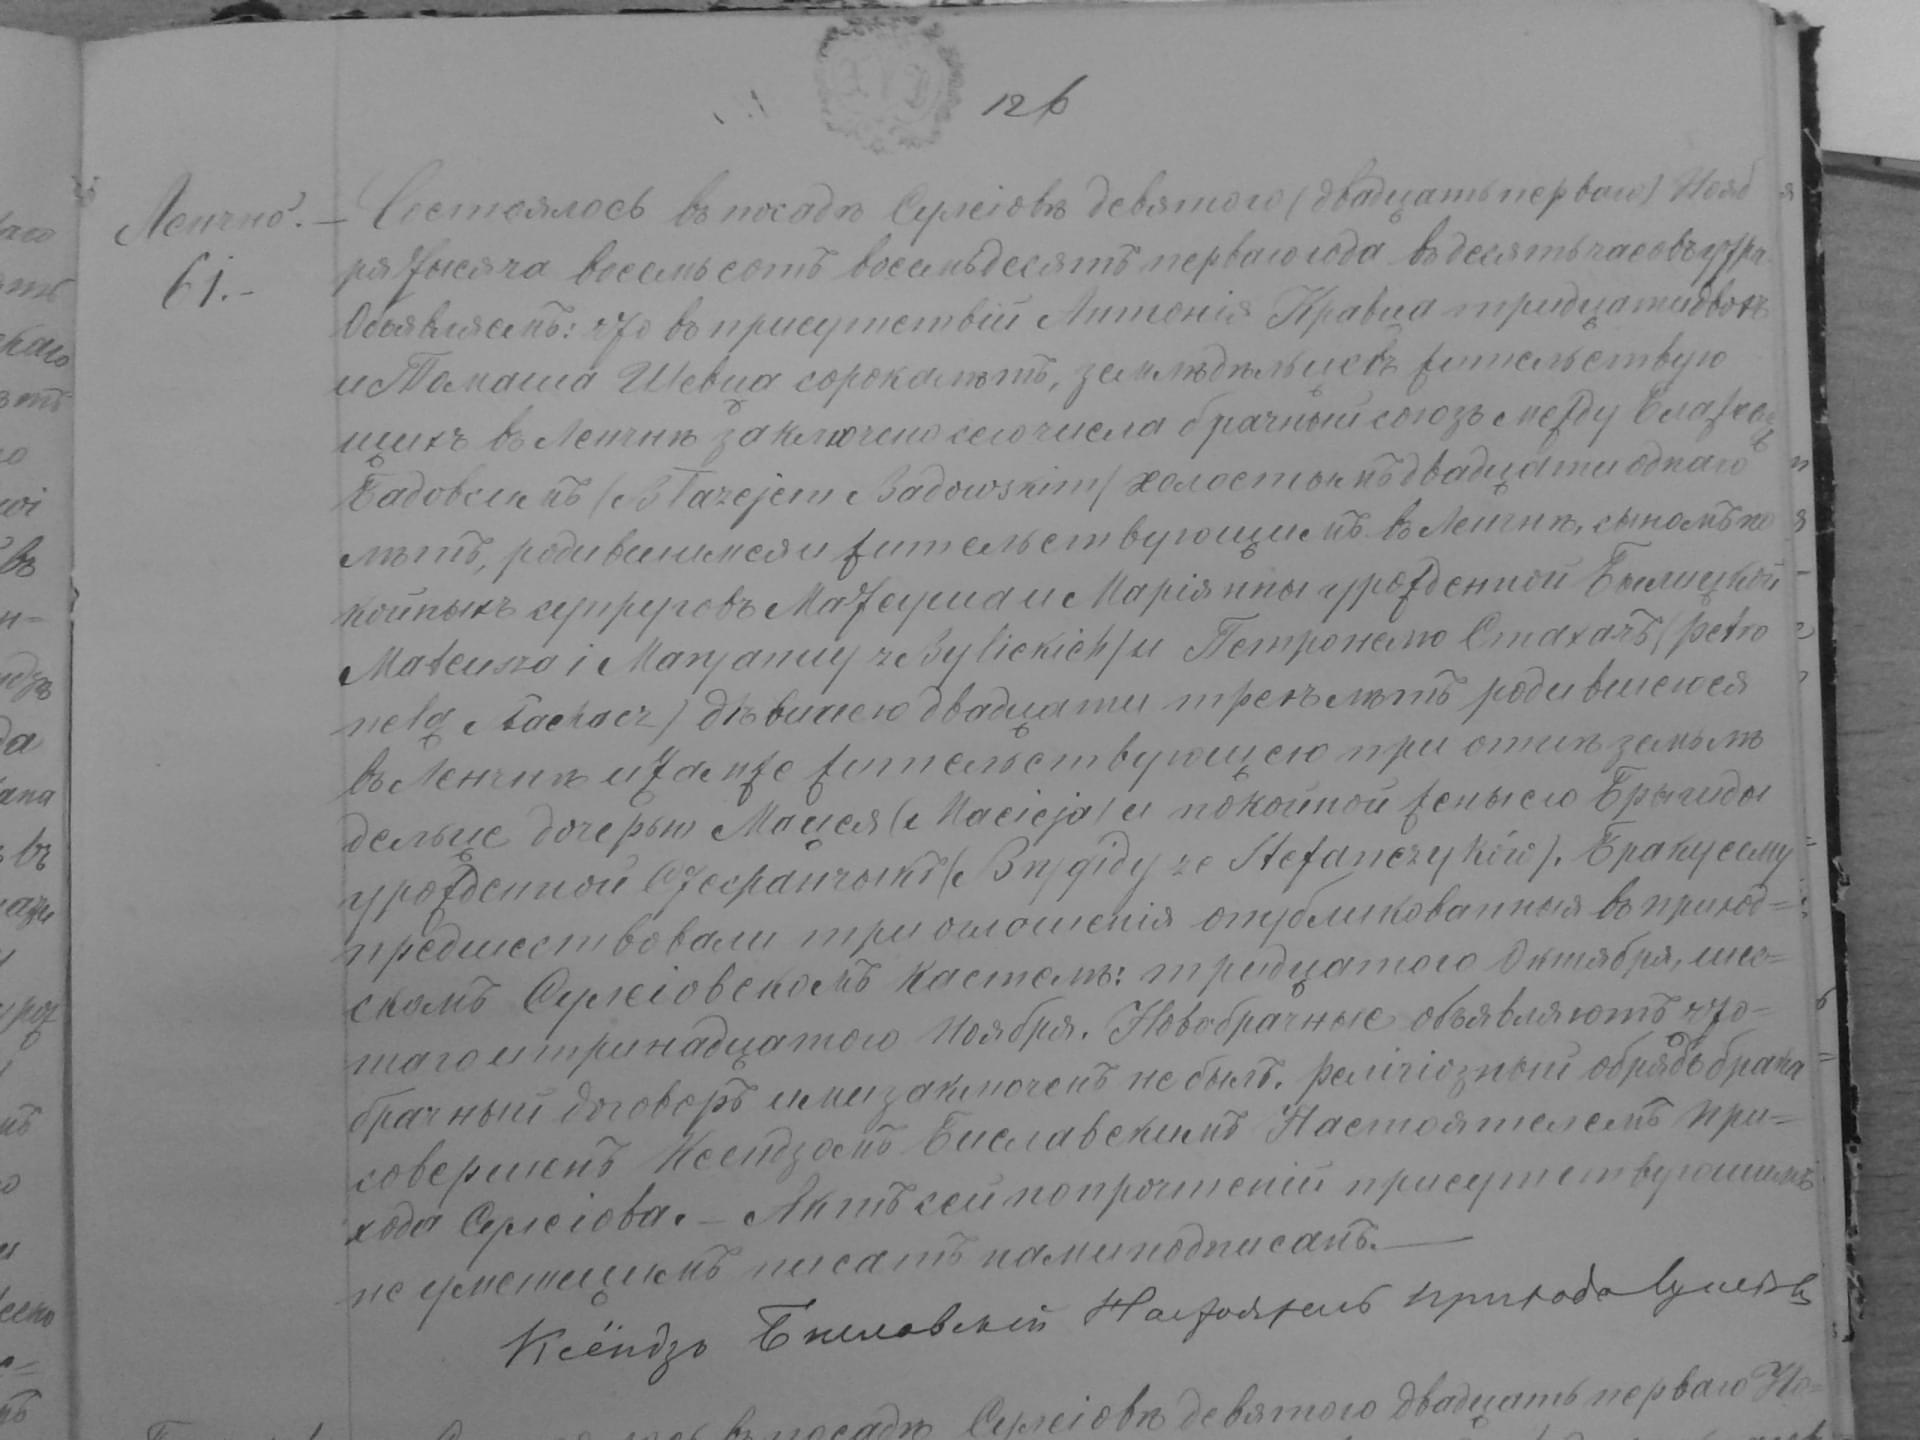 126
Ленчно. — Состоялось въ посадѣ Сулеіовѣ девятого (двадцать перваго) Нояб
61.— ря тысяча восемьсотъ восемьдесятъ перваго года въ десять часовъ утра.
Объявляемъ: что въ присутствіи Антонія Кравца тридцати двохъ
и Томаша Шевца сорока лѣтъ, земледѣльцевъ жительствую
щихъ въ Ленчнѣ заключено сего числа брачный союзъ между Блажеемъ
Бадовскимъ (Błażejem Badowskim) холостымъ двадцати одного
лѣтъ, родившимся и жительствующимъ въ Ленчнѣ, сыномъ по
койныхъ супруговъ Матеуша и Маріянны урожденной Былицкой
Mateusza i Maryanny z Bylickich) и Петронелю Стахачъ (Petro
nelą Stachacz) дѣвицею двадцати трехъ лѣтъ родившеюся
въ Ленчнѣ и тамже жительствующею при отцѣ земле
дельце дочерью Мацея (Macieja) и покойной жены его Брыгиды
урожденной Стефанчыкъ (Brygidy ze Stefanczyków). Браку сему
предшествовали три оглашенія опубликованныя въ приход=
скомъ Сулеіовскомъ костелѣ: тридцатого Октября, шес=
таго и тринадцатого Ноября. Новобрачные объявляютъ что=
брачный договоръ ими заключенъ не былъ. Религіозный обрядъ брака
совершенъ Ксендзомъ Настоятелемъ При=
хода Сулеіова. — Актъ сей по прочтеніи присутствующимъ
не умеющимъ писать нами подписанъ.—
Ксёндзъ Настоятель прихода
въ посадѣ Сулеіовѣ девятого двадцать перваго Но=